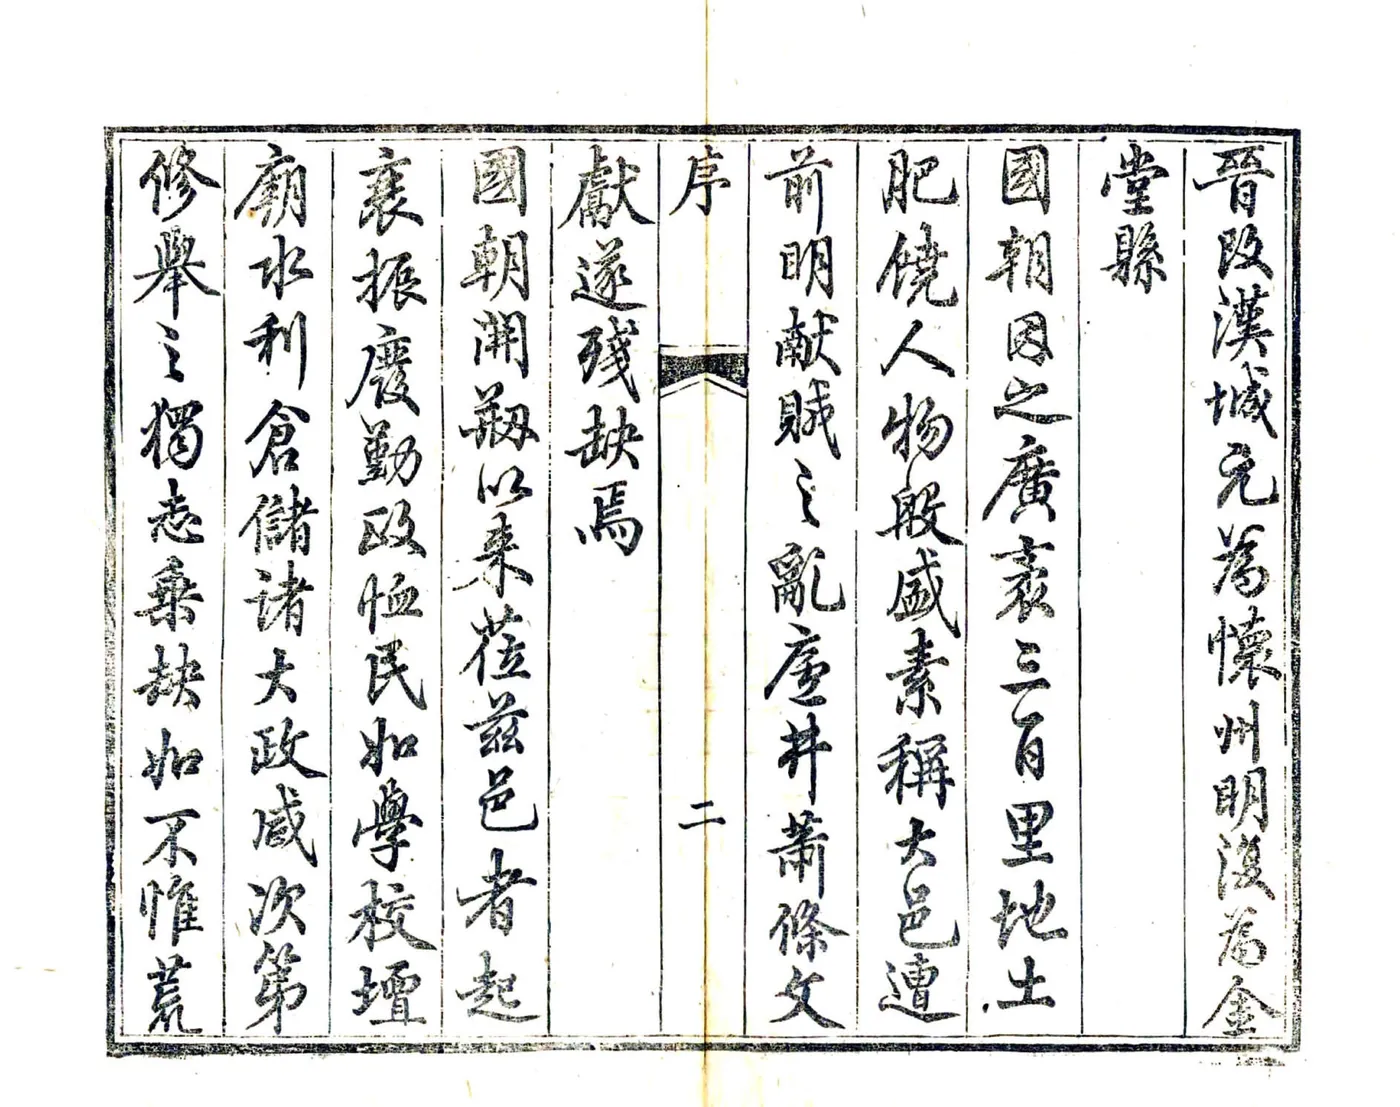 晉改漢城元為懷州明復為金
堂縣
國朝因之廣袤三百里地土
肥饒人物殷盛素稱大邑遭
前明献賊之亂廬井蕭條文
序
二
獻遂殘缺焉
國朝開剏以来莅茲邑者起
衰振廢勤政恤民如學校壇
廟水利倉儲諸大政咸次第
修舉之獨志乘缺如不惟荒